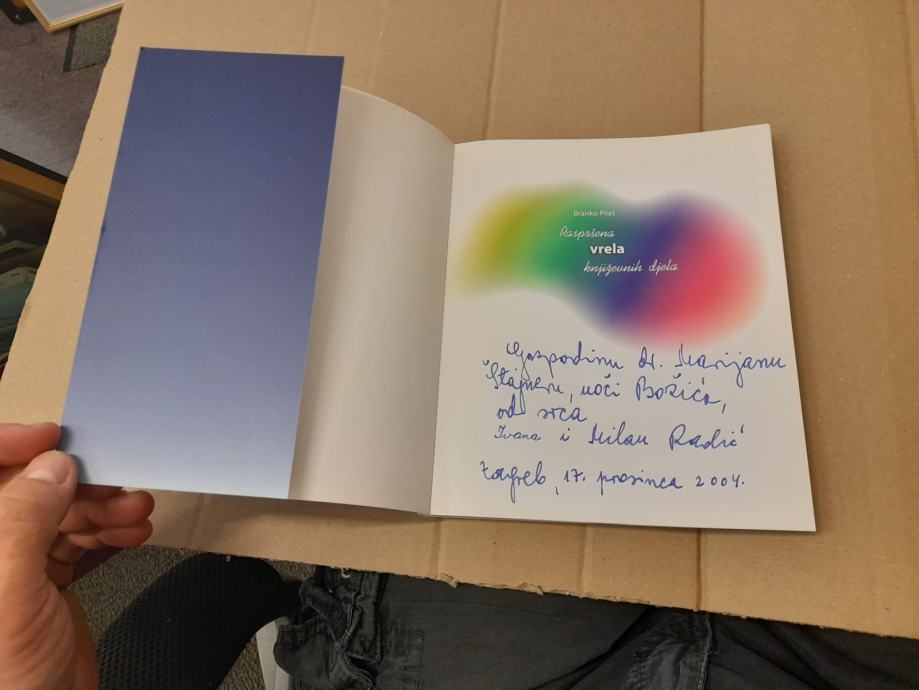 Branko Pilaš
Raspršena
vrela
književnih djela
Gospodinu dr. Marijanu
Štajneru, uoči Božića,
od srca
Ivana i Milan Radić
Zagreb, 17. prosinca 2004.